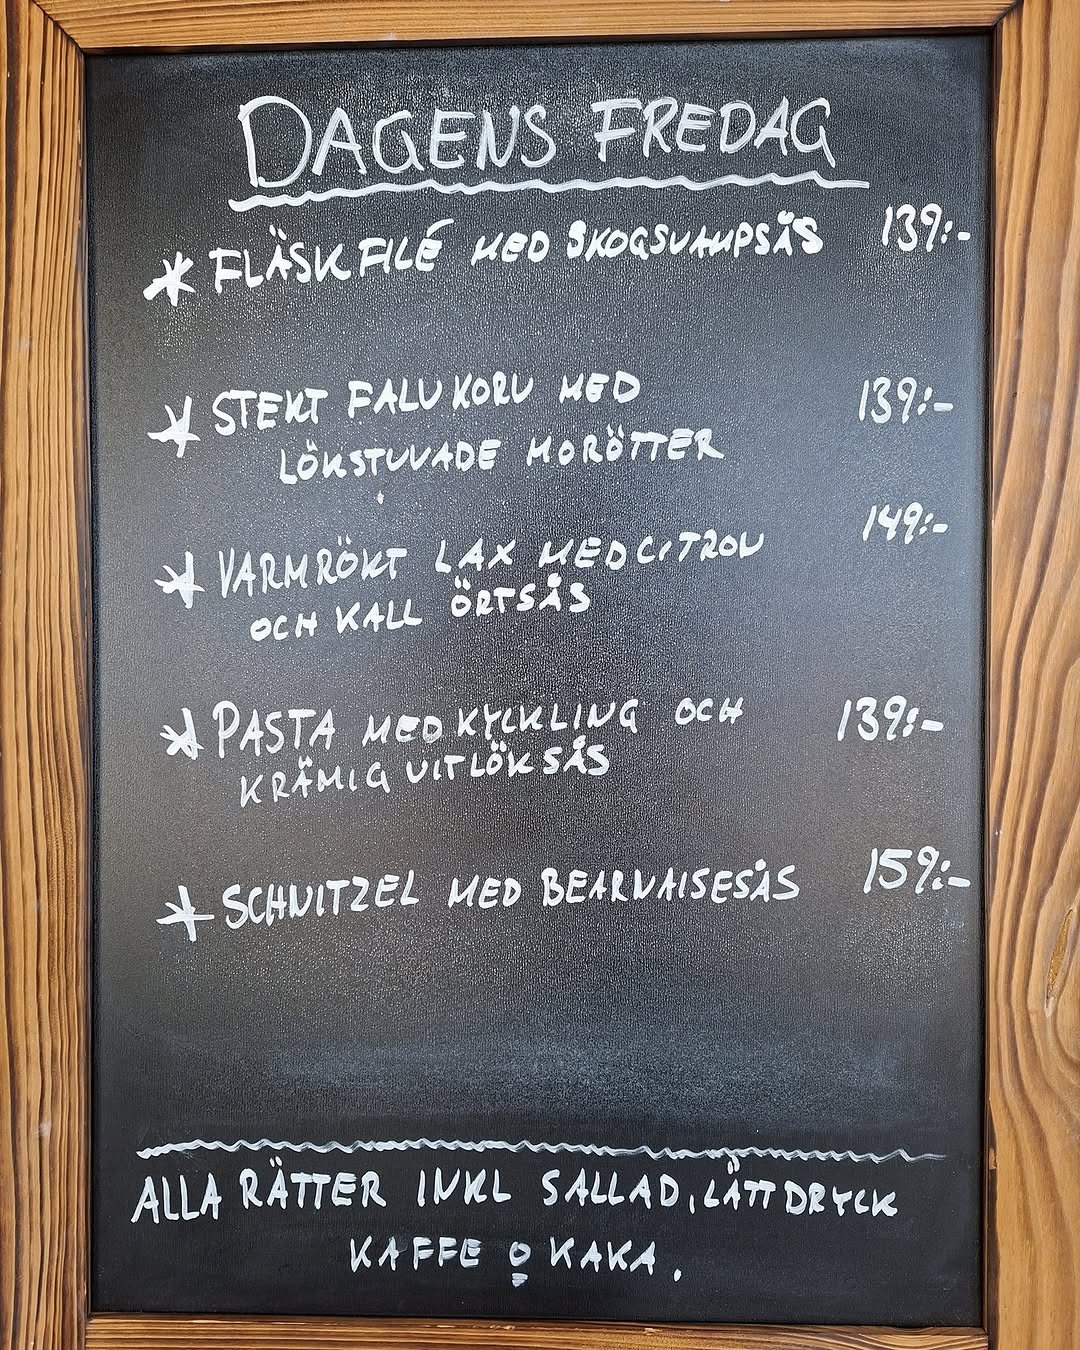 DAGENS FREDAG
* FLÄSKFILÉ MED SKOGSVAMPSÅS 139:-
* STEKT FALUKORV MED 139:-
LÖKSTUVADE MORÖTTER
* VARMRÖKT LAX MED CITRON 149:-
OCH KALL ÖRTSÅS
* PASTA MED KYCKLING OCH 139:-
KRÄMIG VITLÖKSÅS
* SCHNITZEL MED BEARNAISESÅS 159:-
ALLA RÄTTER INKL SALLAD, LÄTTDRYCK
KAFFE o KAKA.